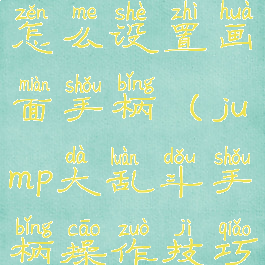 zěn me shè zhì huà
怎么设置画
miàn shǒu bǐng
面手柄（ju
dà luàn dǒu shǒu
mp大乱斗手
bǐng cāo zuò jì qiǎo
柄操作技巧